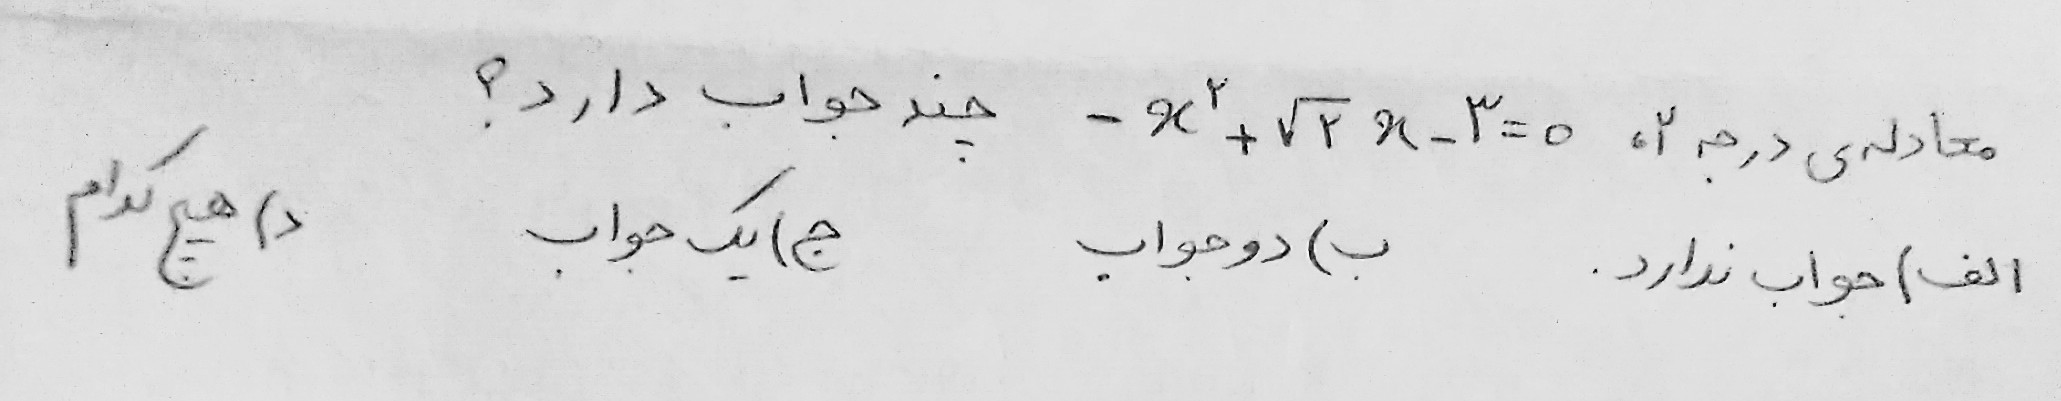 معادله‌ی درجه ۲، -x²+√۲ x-۳=۰ چند جواب دارد؟
الف) جواب ندارد. ب) دو جواب ج) یک جواب د) هیچ کدام